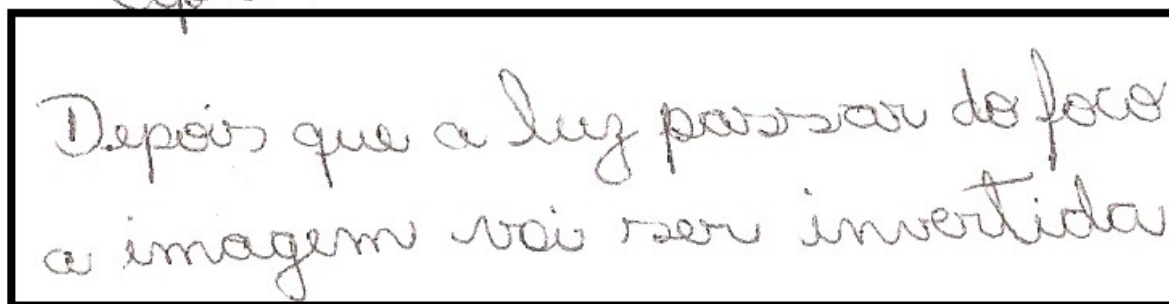 Depois que a luz passar do foco
a imagem vai ser invertida